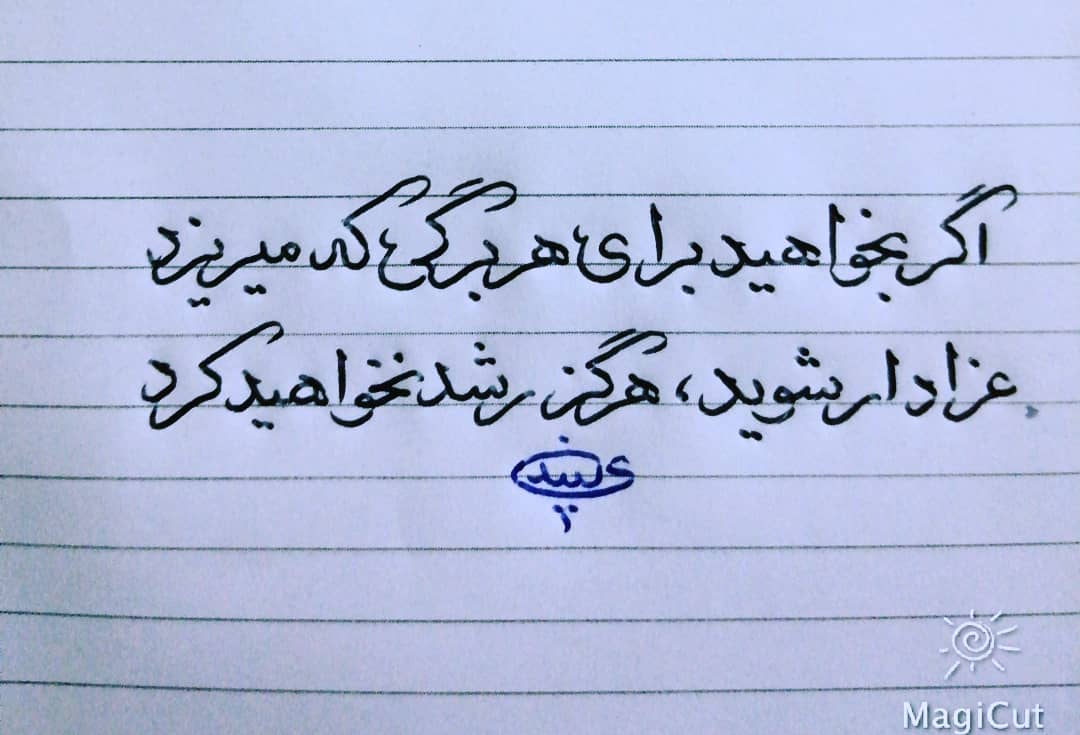 اگر بخواهید برای هر برگی که میریزد
عزادار شوید، هرگز رشد نخواهید کرد
MagiCut